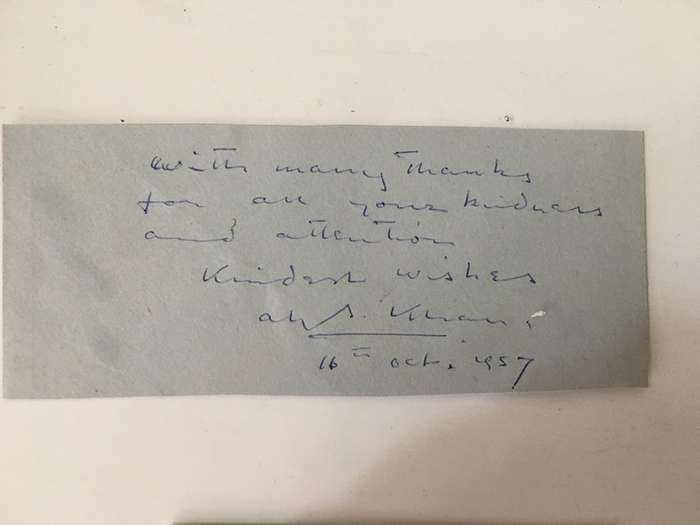 with many thanks
for all your kindness
and attention
Kindest wishes
Aly S. Khan.
16th Oct. 1957